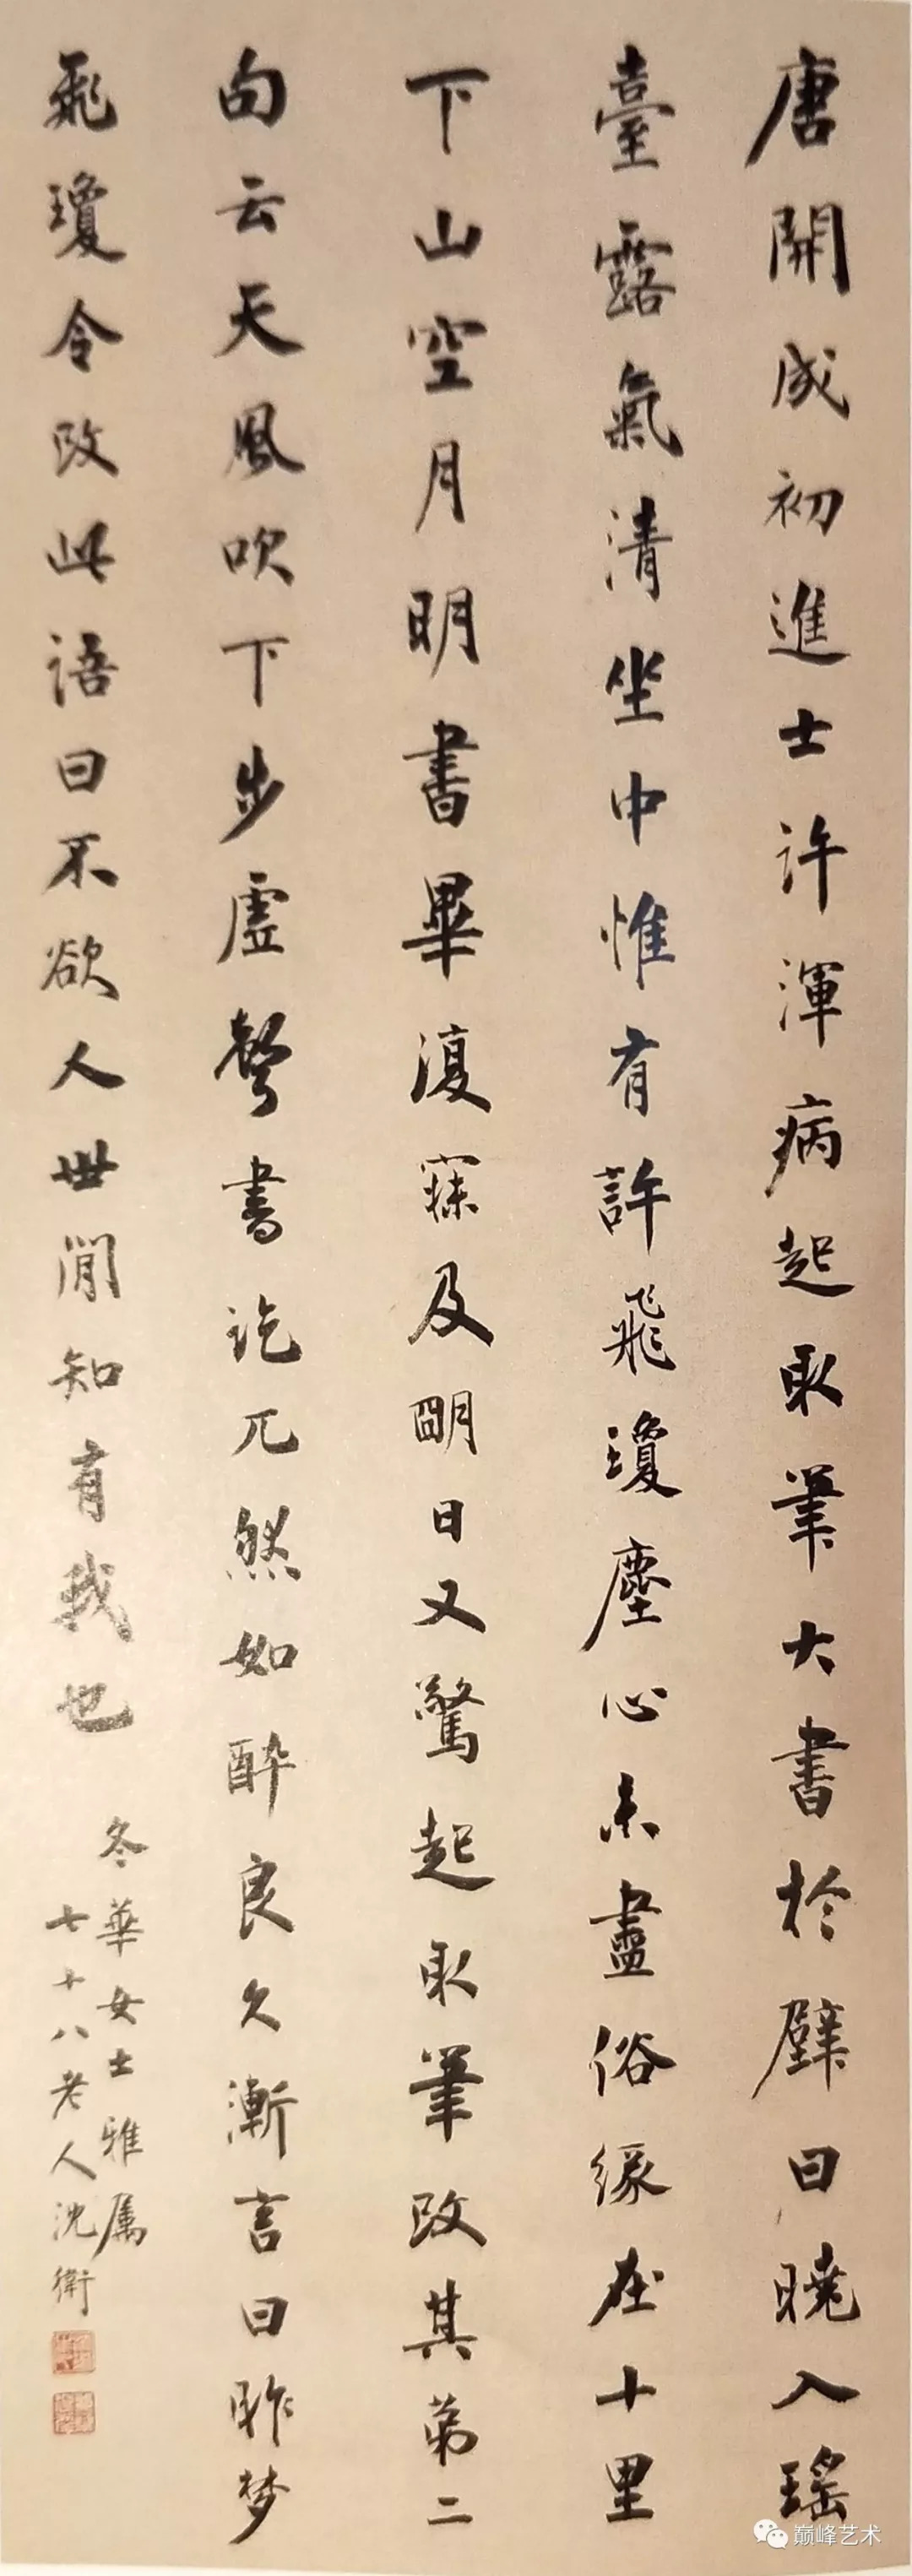 唐開成初進士许渾病起取筆大書於壁曰曉入瑶
臺露氣清坐中惟有許飛瓊塵心未盡俗緣在十里
下山空月明書畢復寐及明日又驚起取筆改其第二
句云天風吹下步虛聲書訖兀然如醉良久漸言曰昨梦
飛瓊令改此語曰不欲人世間知有我也
冬華女士雅属
七十八老人沈衛
巅峰艺术